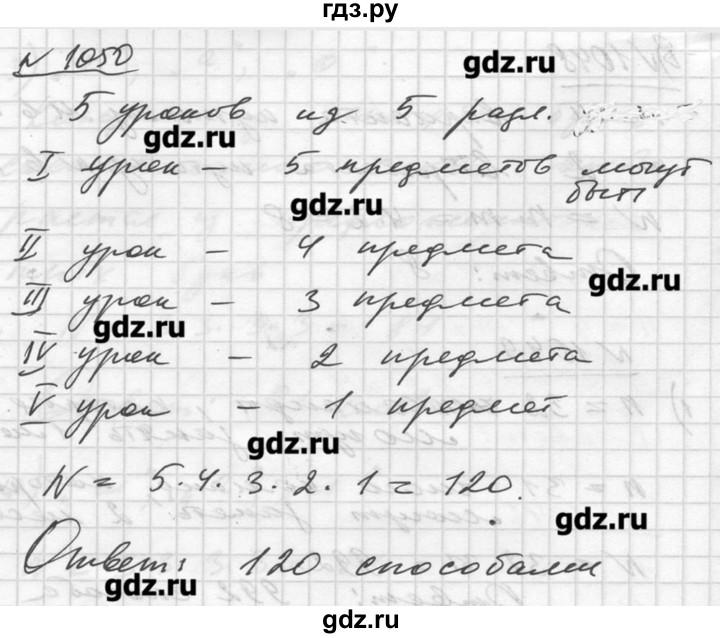 гдз.ру
№ 1050
gdz.ru
5 уроков из 5 разл.
gdz.ru
I урок – 5 предметов могут
быть
gdz.ru
II урок – 4 предмета
gdz.ru
III урок – 3 предмета
gdz.ru
IV урок – 2 предмета
V урок – 1 предмет
gdz.ru
N = 5·4·3·2·1 = 120.
gdz.ru
Ответ: 120 способами
gdz.ru
gdz.ru